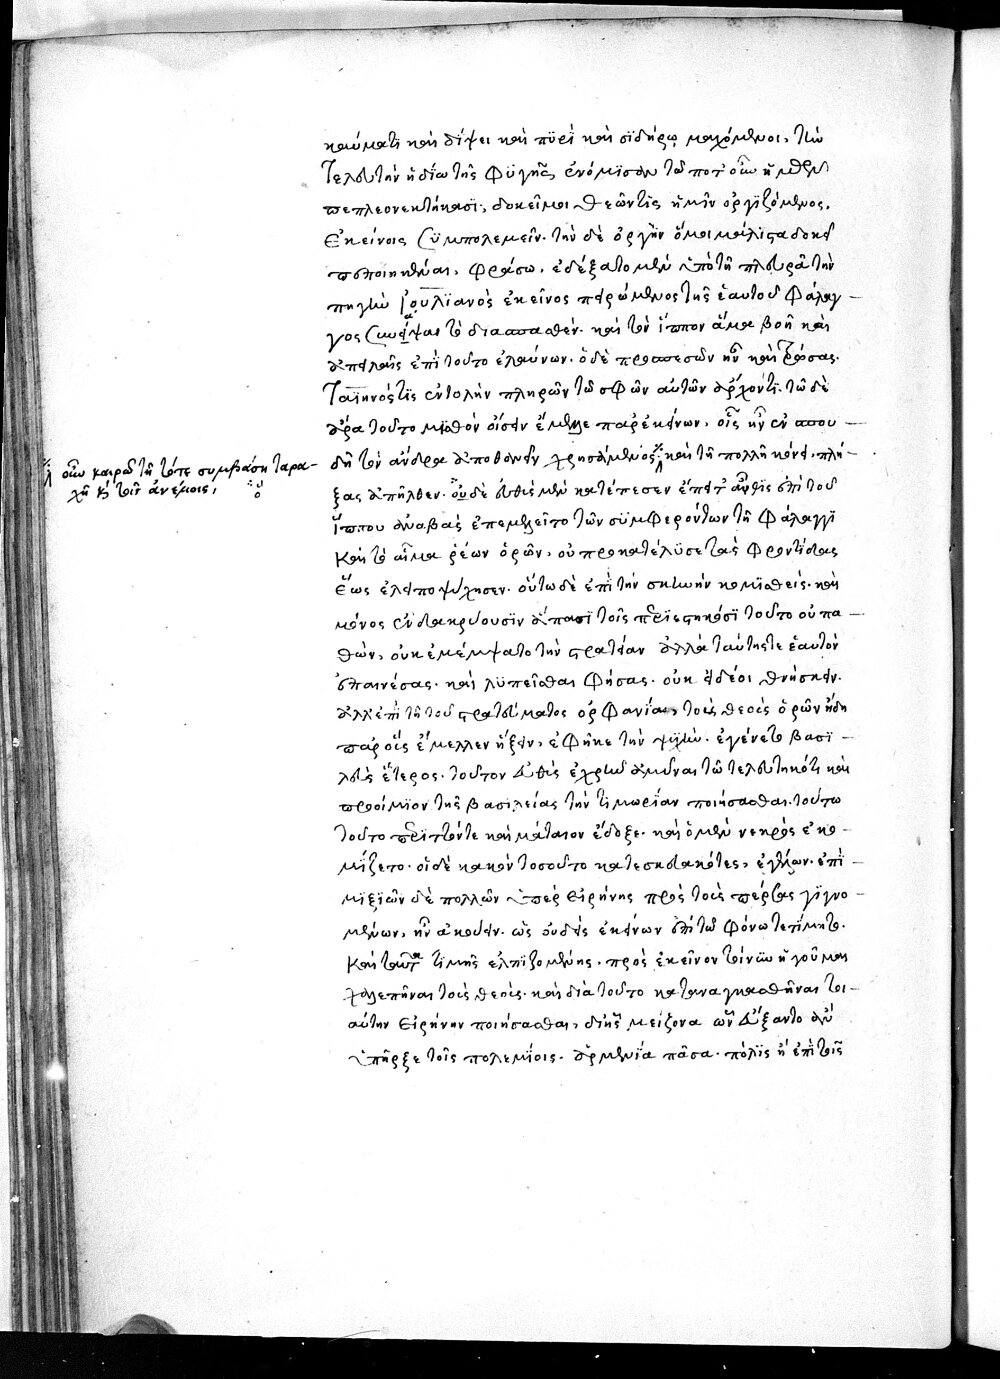 καύματι καὶ δίψει καὶ πϋρὶ καὶ σϊδήρῳ μαχόμενοι, τὴν
τελευτὴν ἡδίω τῆς φϋγῆς ἐνόμϊσαν τῶ ποτ' οὖν ἡμῶν
πεπλεονεκτήκασι, δοκεῖ μοι θεῶν τὶς ἡμῖν ὀργϊζόμενος,
ἐκείνοις συμπολεμεῖν. τὴν δὲ ὀργὴν ὅ μοι μάλϊστα δοκεῖ
πεποιηκέναι, φράσω, ἐδέξατο μὲν ὑπὸ τῆ πλευρᾶ τὴν
πηγὴν ϊουλϊανὸς ἐκεῖνος πειρώμενος τῆς ἑαυτοῦ φάλαγ-
γος συνάψαι τὸ διασπασθὲν. καὶ τὸν ἵππον ἅμα βοῆ καὶ
ἀπειλαῖς ἐπὶ τοῦτο ἐλαύνων. ὁ δὲ προσπεσὼν ἦν καὶ τρώσας.
Ταϊηνός τϊς ἐντολὴν πληρῶν τῶ σφῶν αὐτῶν ἄρχοντϊ. τῶ δὲ
ἄρα τοῦτο μϊσθὸν οἴσειν ἔμελλε παρ' ἐκείνων, οἷς ἦν ἐν σπου-
δῆ τὸν ἄνδρα ἀποθανεῖν χρησάμενος καὶ τῆ πολλῆ κόνει, πλή-
ξας ἀπῆλθεν. ὁ δὲ εὐθὺς μὲν κατέπεσεν ἔπειτ' αὖθις ἐπὶ τοῦ
ἵππου ἀναβὰς ἐπεμελεῖτο τῶν συμφερόντων τῆ φάλαγγϊ
Καὶ τὸ αἷμα ῥέων ὁρῶν, οὐ προκατέλϋσε τὰς φροντίδας
ἕως ἐλειποψύχησεν. οὕτω δὲ ἐπὶ τὴν σκηνὴν κομϊσθεὶς. καὶ
μόνος ἐν δακρύουσϊν ἅπασϊ τοῖς περϊεστηκόσϊ τοῦτο οὐ πα-
θὼν, οὐκ ἐμέμψατο τὴν στρατείαν ἀλλὰ ταύτης τε ἑαυτὸν
ἐπαινέσας. καὶ λϋπεῖσθαι φήσας. οὐκ εἰ δέοι θνήσκειν.
ἀλλ' ἐπὶ τῆ τοῦ στρατεύματος ὀρφανία, τοὺς θεοὺς ὁρῶν ἤδη
παρ' οὓς ἔμελλεν ἥξειν, ἀφῆκε τὴν ψϋχὴν. ἐγένετο βασϊ-
λεὺς ἕτερος. τοῦτον εὐθὺς ἐχρῆν ἀμῦναι τῶ τελευτηκότι καὶ
προοίμϊον τῆς βασιλείας τὴν τϊμωρίαν ποιήσασθαι. τούτω
τοῦτο περϊττόν τε καὶ μάταιον ἔδοξε. καὶ ὁ μὲν νεκρὸς ἐκο-
μίζετο. οἱ δὲ κακὸν τοσοῦτο κατεσκευακότες, ἐγέλων. ἐπϊ-
μϊξϊῶν δὲ πολλῶν ὑπὲρ εἰρήνης πρὸς τοὺς πέρσας γϊγνο-
μένων, ἦν ἀκούειν. ὡς οὐδεὶς ἐκείνων ἐπὶ τῶ φόνω τετίμητο.
Καὶ ταῦτα τϊμῆς ἐλπϊζομένης, πρὸς ἐκεῖνον τοίνϋν ἡγοῦμαι
χαλεπῆναι τοὺς θεοὺς. καὶ διὰ τοῦτο καταναγκασθῆναι τοι-
αύτην εἰρήνην ποιήσασθαι, δι' ἧς μείζονα ὧν εὔξαντο ἂν
ὑπῆρξε τοῖς πολεμίοις. ἀρμενϊα πᾶσα. πόλϊς ἡ ἐπὶ τοῖς
οὖν καιροῦ τῆ τότε συμβάση ταρα-
χῆ καὶ τοῖς ἀνέμοις,